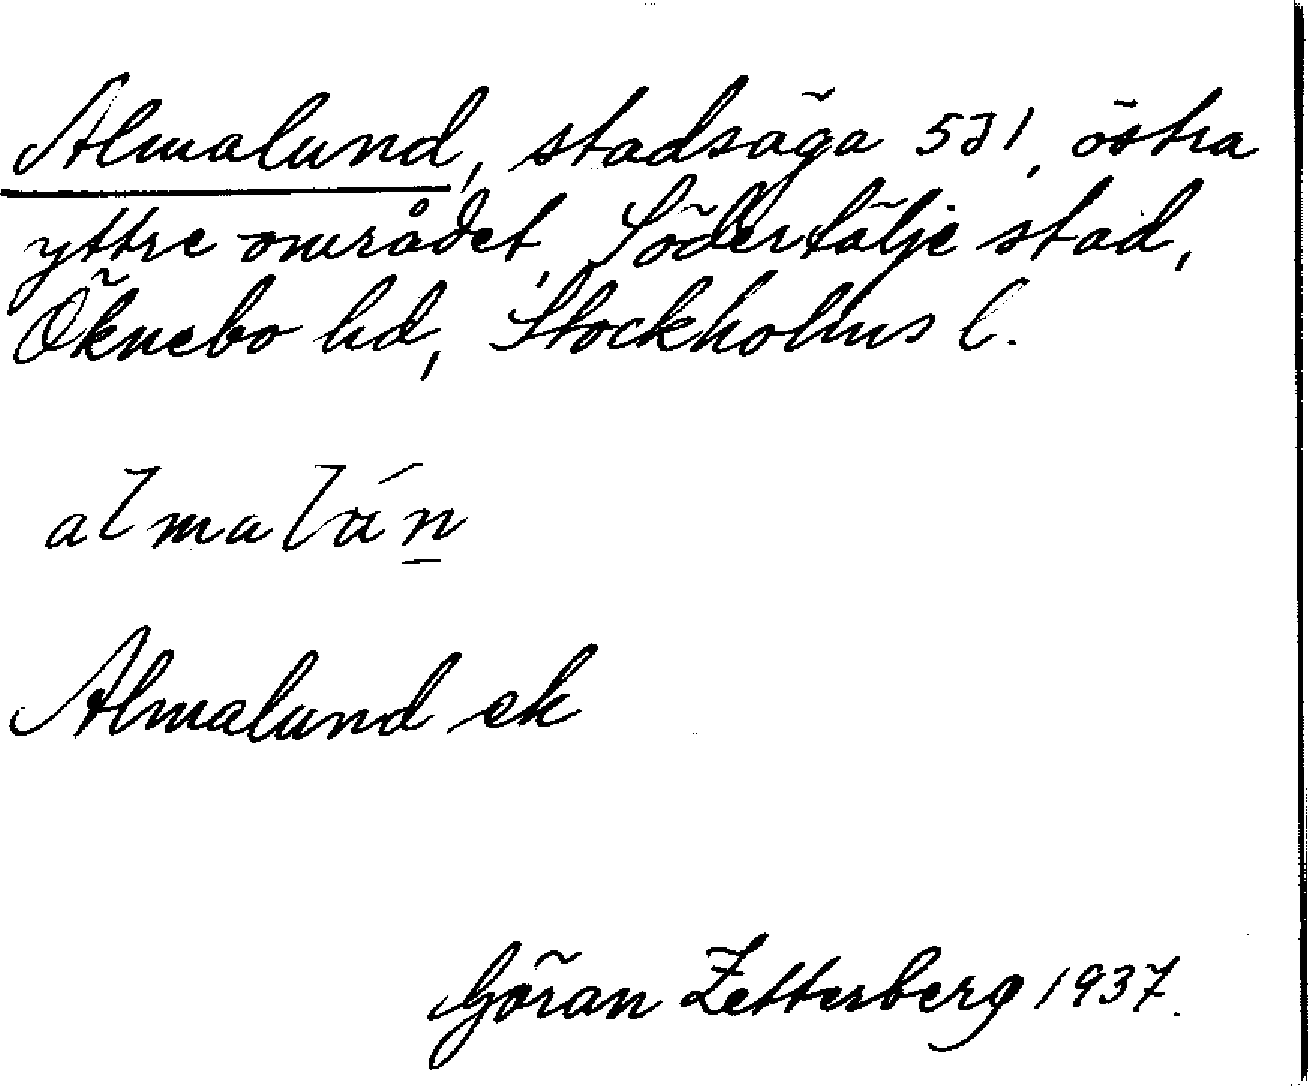 Almalund, stadsäga 531, östra
yttre området, Södertälje stad,
Öknebo hd, Stockholms l.
almalún̲
Almalund ek
Göran Zetterberg 1937.